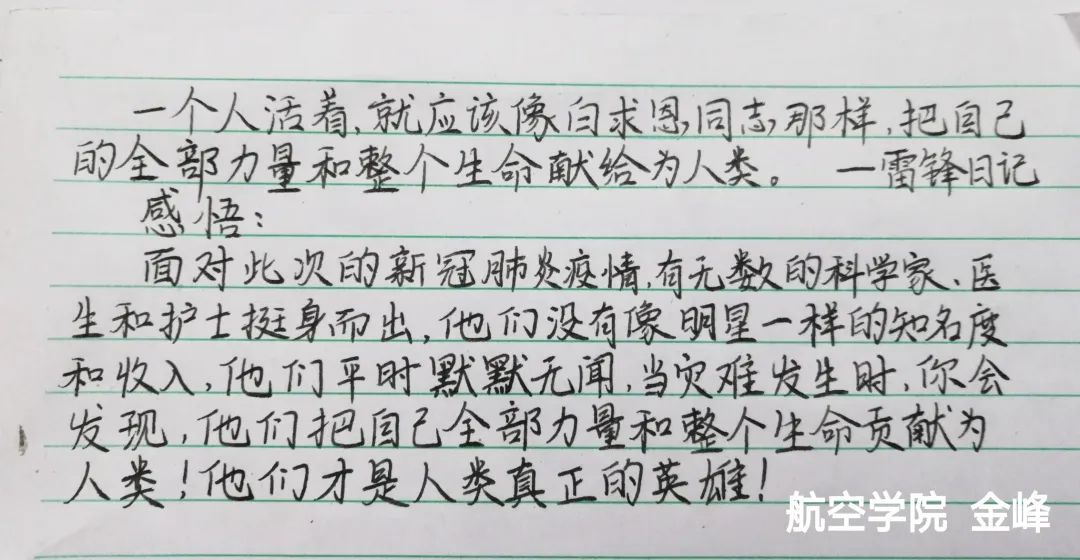 一个人活着，就应该像白求恩同志那样，把自己
的全部力量和整个生命献给为人类。 —雷锋日记
感悟：
面对此次的新冠肺炎疫情，有无数的科学家、医
生和护士挺身而出，他们没有像明星一样的知名度
和收入，他们平时默默无闻，当灾难发生时，你会
发现，他们把自己全部力量和整个生命贡献为
人类！他们才是人类真正的英雄！
航空学院 金峰